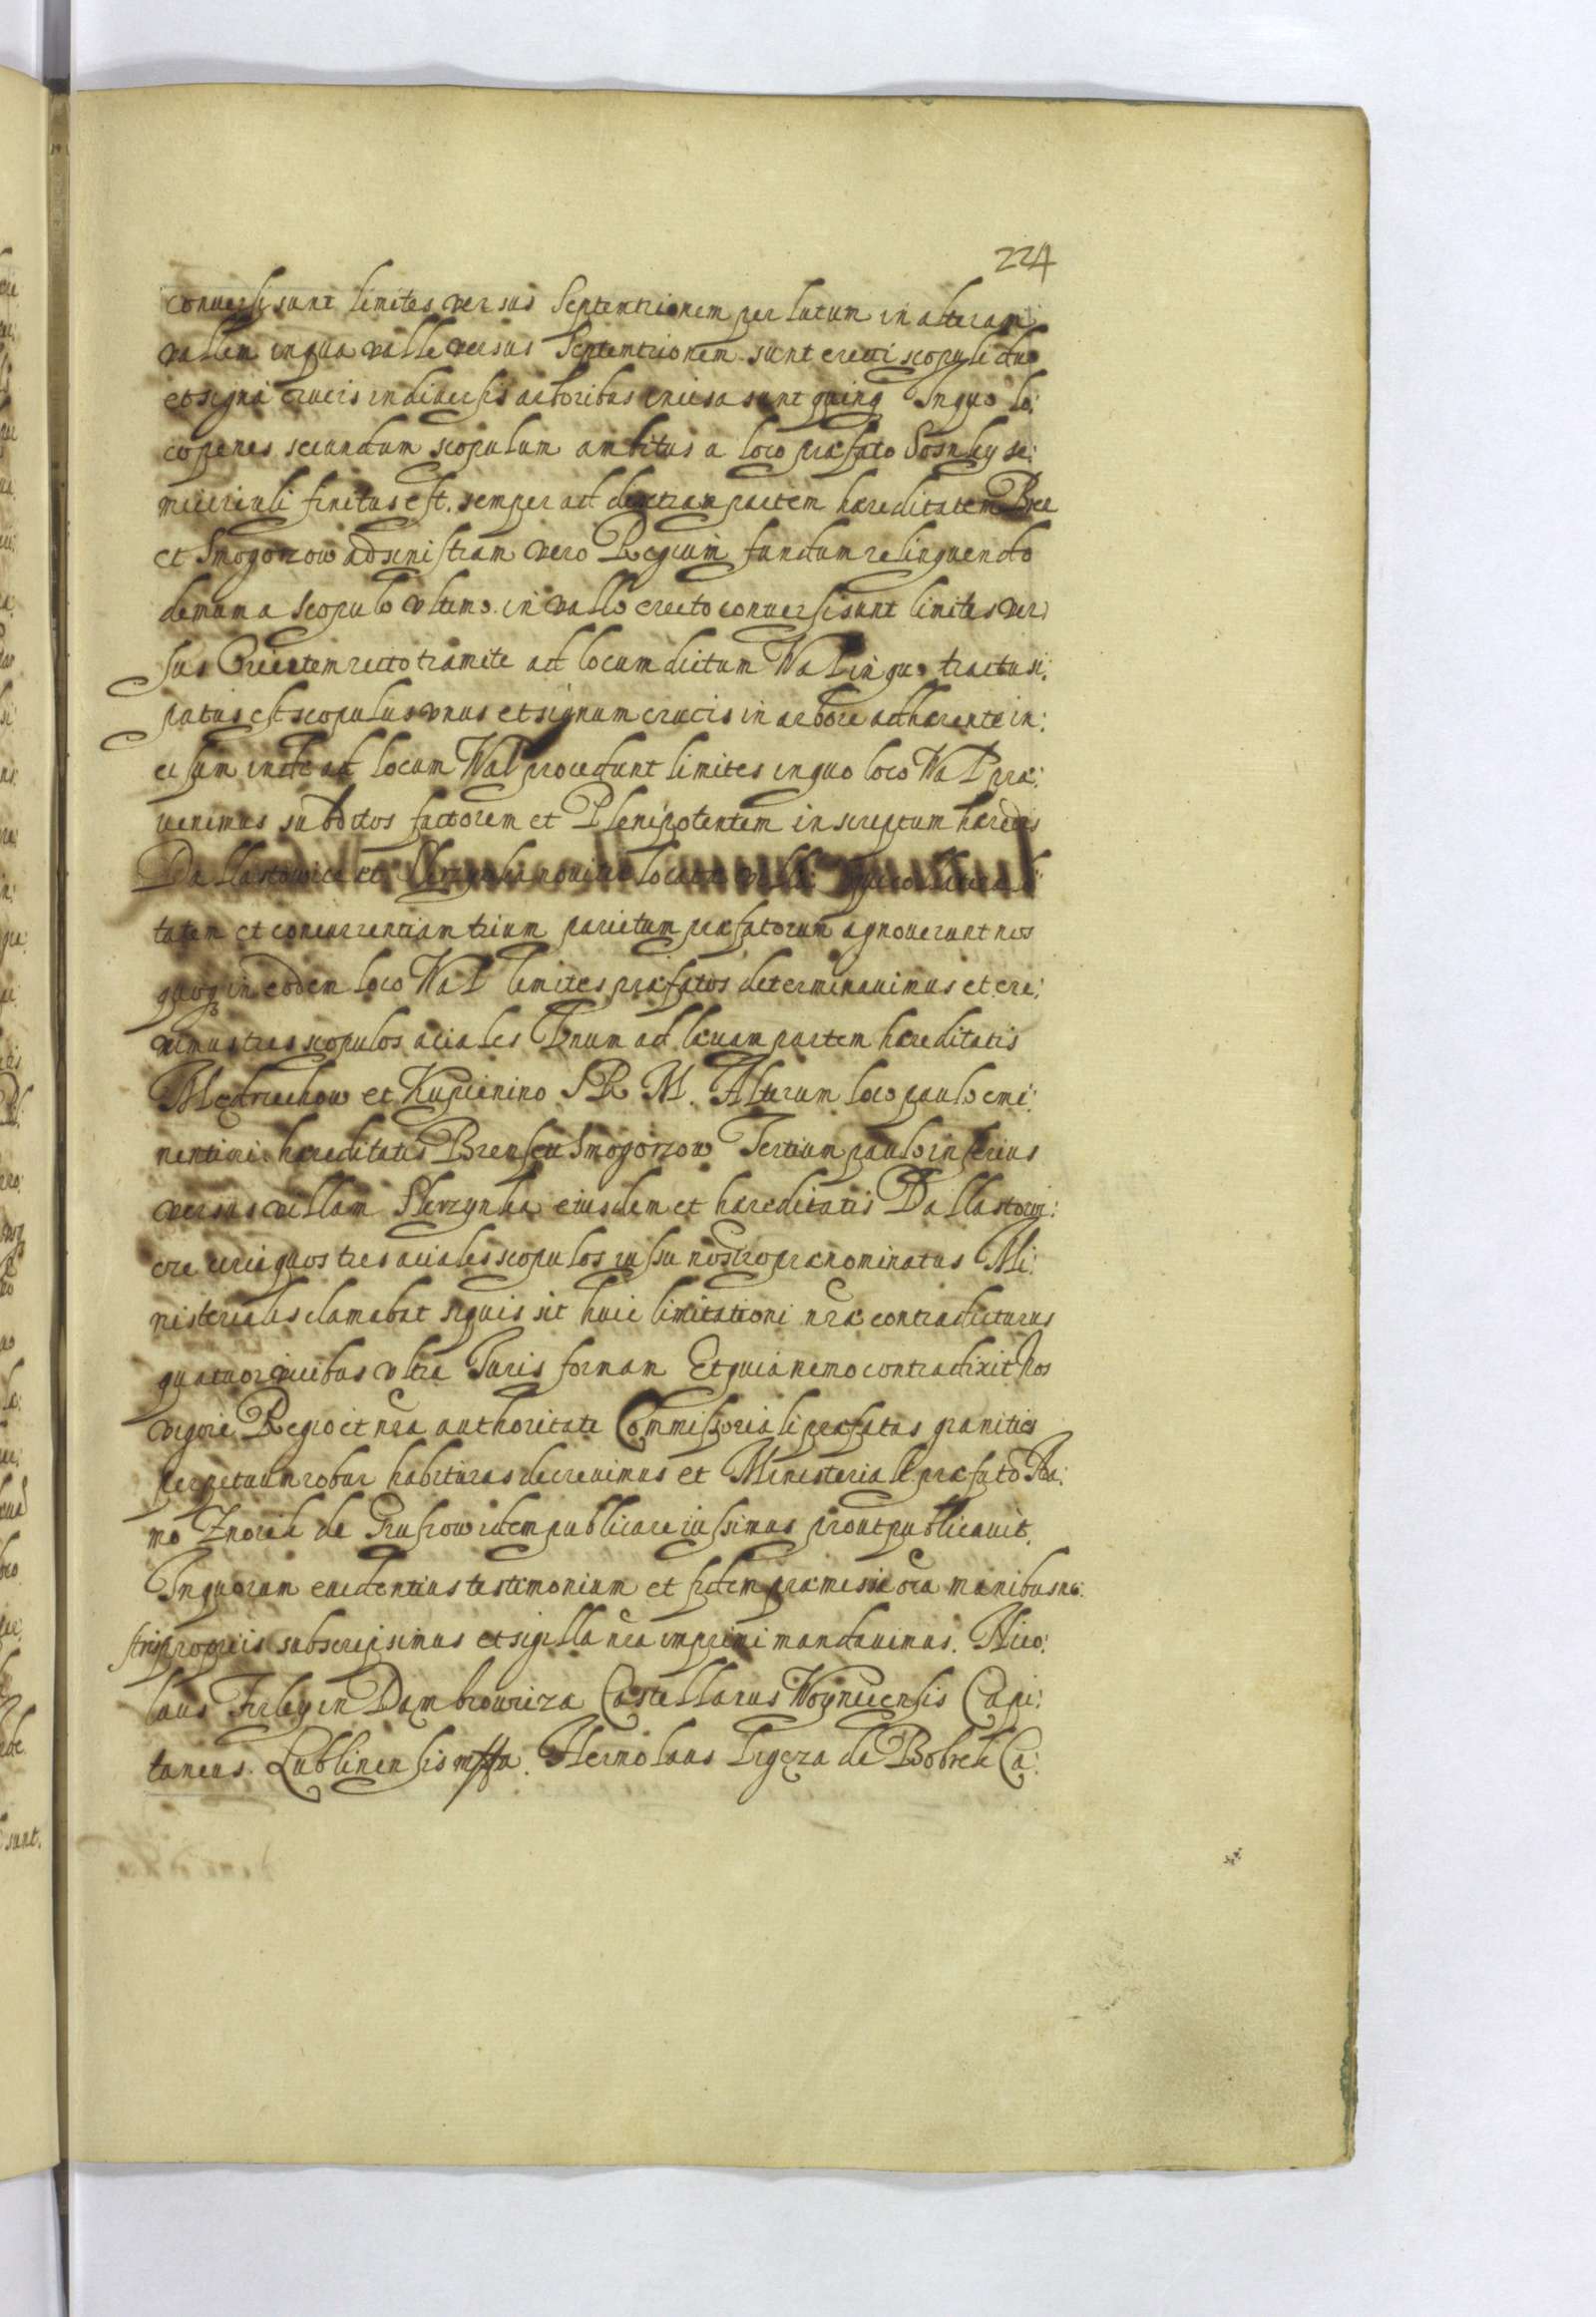 224
conuersi sunt limites versus Septentrionem per lutum in alteram
vallem in qua valle versus Septentrionem sunt erecti scopuli duo
et signa crucis in diuersis arboribus incisa sunt quinq In quo lo:
co penes secundum scopulum ambitus a loco præfato Sosnky se:
micirculi finitus est. semper ad dextram partem hæreditatem Bren
et Smogorzow ad sinistram vero Regium fundum relinquendo
demum a scopulo vltimo in vallo erecto conuersi sunt limites ver
sus Orientem recto tramite ad locum dictum Wal in quo tractu si:
patus est scopulus vnus et signum crucis in arbore adhærente in:
cisum inde ad locum Wal procedunt limites in quo loco Wal præ:
uenimus subditos factorem et Plenipotentem inscriptum hæredis
Dallastowice et Slerzynka nouiter locatæ
tatem et concurrentiam trium parietum præfatorum agnouerunt nos
quoq in eodem loco Wal limites præfatos determinauimus et ere:
ximus tres scopulos aciales Vnum ad læuam partem hæreditatis
Medrzechow et Kupienino S R M. Alterum loco paulo emi:
nentiori hæreditatis Bren seu Smogorzow Tertium paulo inferius
versus villam Slerzynka eiusdem et hæreditatis Dallastowi:
cze circa quos tres aciales scopulos iussu nostro prænominatus Mi:
nisterialis clamabat siquis sit huic limitationi nræ contradicturus
quatuor vicibus vltra Iuris formam Et quia nemo contradixit Nos
vigore Regio et nra authoritate Commissoriali præfatas granities
perpetuum robur habituras decreuimus et Ministeriali præfato Ada:
mo Znorek de Grusrow idem publicare iussimus prout publicauit.
In quorum euidentius testimonium et fidem præmissa ora manibus no:
stris propriis subscripsimus et sigilla nra imprimi mandauimus. Nico:
laus Firley in Dambrowicza Castellanus Woynicensis Capi:
taneus Lublinensis mppa. Hermolaus Ligęza de Bobrek Ca: